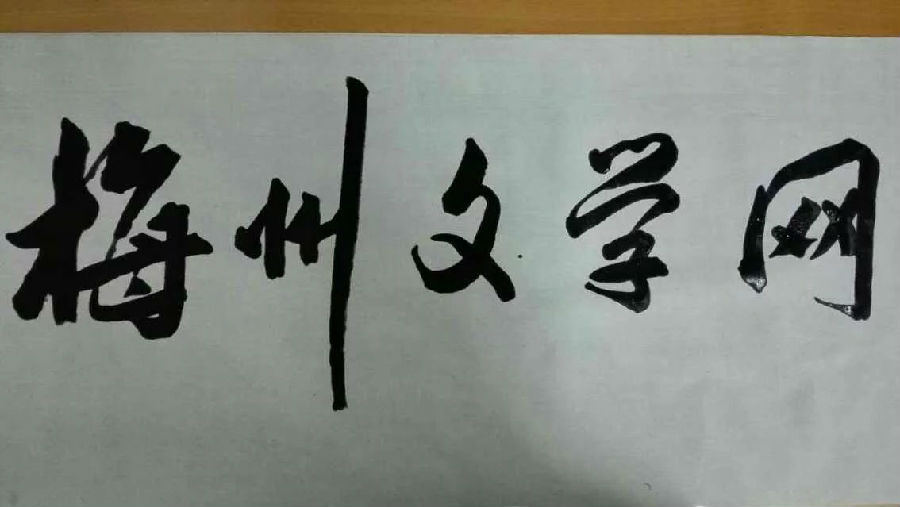 梅州文学网